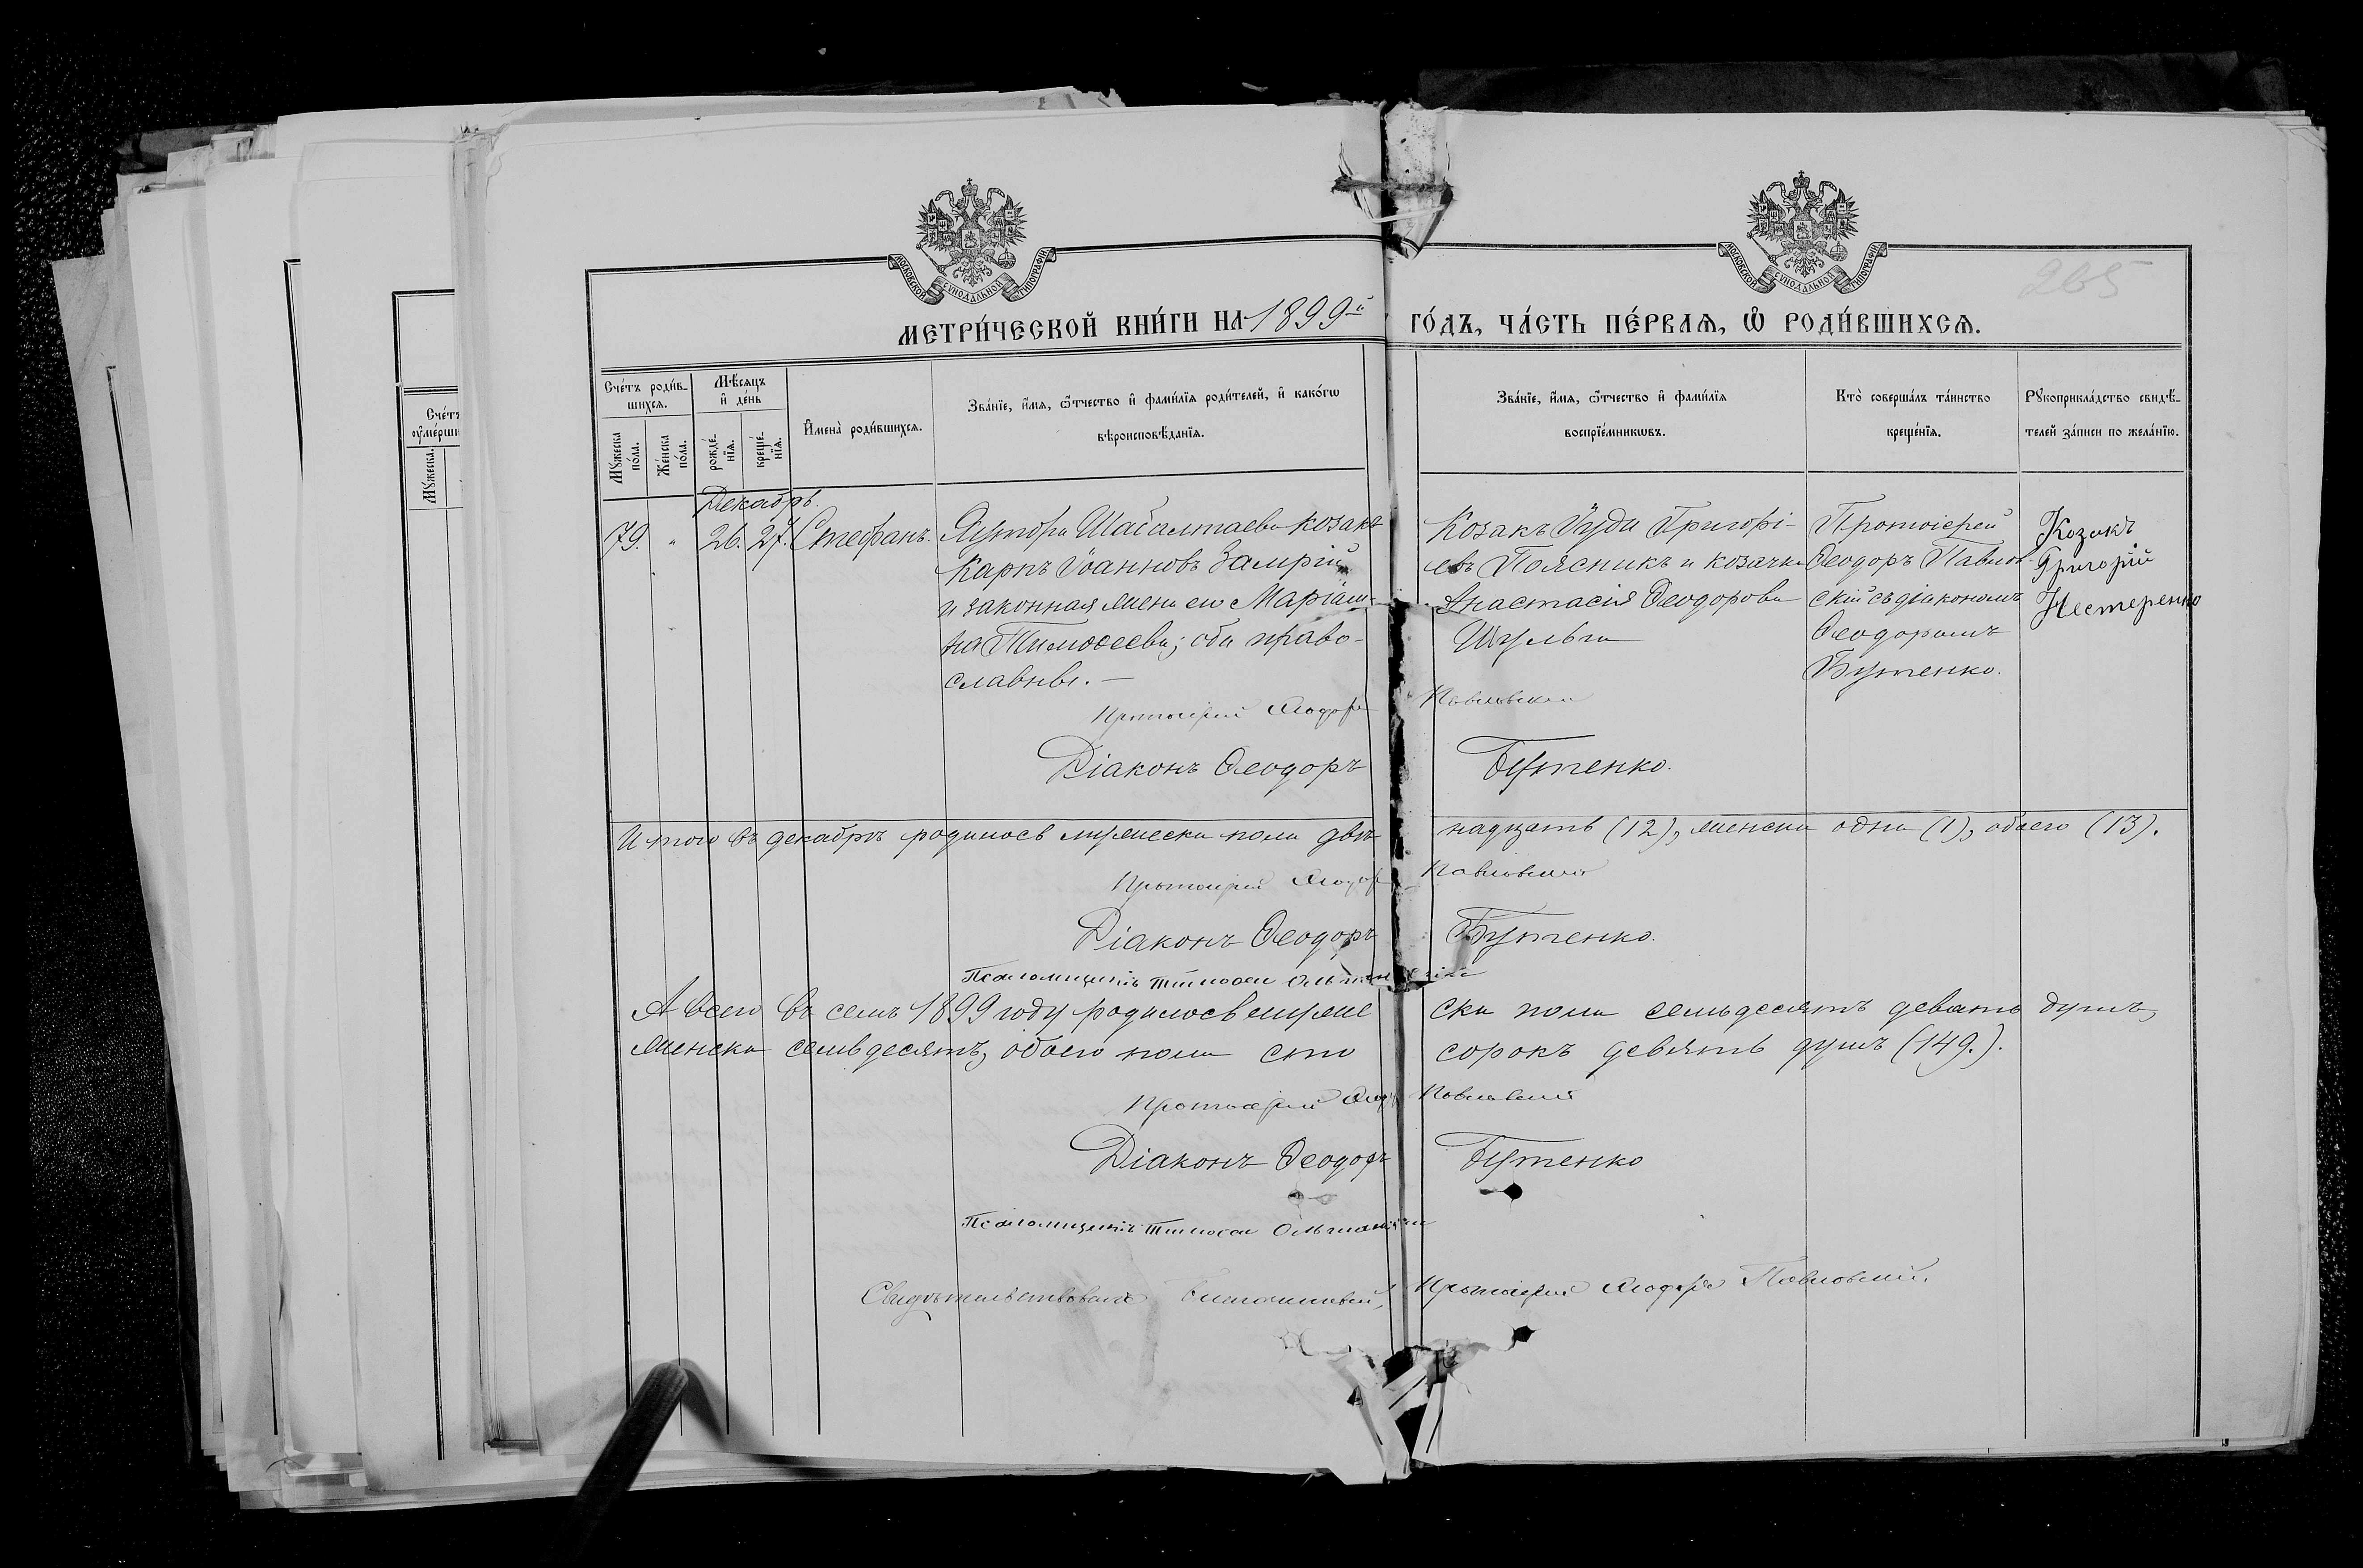 МОСКОВСКОЙ СѴНОДАЛЬНОЙ ТИПОГРАФІИ
МОСКОВСКОЙ СѴНОДАЛЬНОЙ ТИПОГРАФІИ
265
МЕТРИ́ЧЕСКОЙ КНИ́ГИ НА 1899й ГО́ДЪ, ЧА́СТЬ ПЕ́РВАѦ, Ѡ҆ РОДИ́ВШИХСѦ.
Сче́тъ роди́в-
шихсѧ.
Мꙋ́жеска
по́ла.
Же́нска
по́ла.
Мѣ́сѧцъ
и҆ де́нь
рожде́-
нїѧ.
креще́-
нїѧ.
И҆мена̀ роди́вшихсѧ.
Зва́нїе, и҆́мѧ, ѻ҆́тчество и҆ фами́лїѧ роди́телей, и҆ како́гѡ
вѣроисповѣ́данїѧ.
Зва́нїе, и҆́мѧ, ѻ҆́тчество и҆ фами́лїѧ
воспрїе́мникѡвъ.
Кто̀ соверша́лъ та́инство
креще́нїѧ.
Рꙋкоприкла́дство свидѣ́-
телей за́писи по жела́нїю.
Сче́тъ
Мꙋ́жеска.
Декабрь.
79. " 26. 27. Стефанъ.
Хутора козакъ
Карпъ Іоанновъ Замрій
и законная жена его Маріам-
на Тимоѳеева; оба право-
славны. —
Козакъ Іуда Григорі-
евъ Поясникъ и козачка
Анастасія Ѳеодорова
Шульга
Протоіерей
Ѳеодоръ Павлов-
скій съ діакономъ
Ѳеодоромъ
Бутенко.
Козакъ
Григорій
Нестеренко
Протоіерей Ѳеодоръ Павловскій
Діаконъ Ѳеодоръ Бутенко.
Итого въ декабрѣ родилось мужеска пола двѣ надцать (12), женска одна (1), обоего (13).
Протоіерей Ѳеодоръ Павловскій
Діаконъ Ѳеодоръ Бутенко.
Псаломщикъ Тимоѳей
А всего въ семъ 1899 году родилось муже ска пола семьдесятъ девять душъ,
женска семьдесятъ, обоего пола сто сорокъ девять душъ (149.).
Протоіерей Ѳеодоръ Павловскій
Діаконъ Ѳеодоръ Бутенко
Псаломщикъ Тимоѳей
Свидѣтельствовалъ Благочинный, Протоіерей Ѳеодоръ Павловскій.